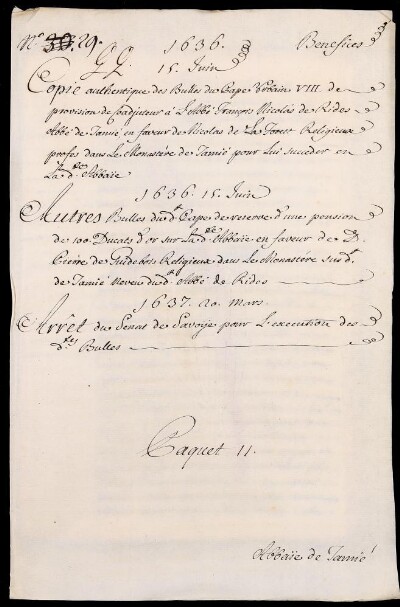 N.º 30. 29. 1636. Benefices
GG. 15. Juin
Copie authentique des Bulles du Pape Urbain VIII. de
provision de Coadjuteur à L'Abbé François Nicolas de Rides
Abbé de Tamié en faveur de Nicolas de La Forest Religieux
profes dans Le Monastère de Tamié pour Lui succeder en
La d.te Abbaïe
1636. 15. Juin
Autres Bulles dud.t Pape de reserve d'une pension
de 100. Ducats d'or sur La d.te Abbaïe en faveur de D.
Pierre de Guidebois Religieux dans Le Monastère susd.t
de Tamié Neveu dud.t Abbé de Rides
1637. 20. mars
Arrêt du Senat de Savoye pour L'execution des
d.tes Bulles
Paquet 11.
Abbaïe de Tamié